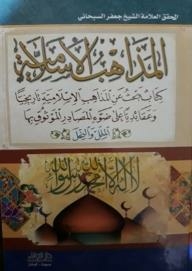 المحقق العلامة الشيخ جعفر السبحاني
المذاهب الإسلامية
كتاب يبحث عن المذاهب الإسلامية تاريخيا
وعقائديا على ضوء المصادر الموثوق بها
الملل والنحل
لا اله الا الله محمد رسول الله